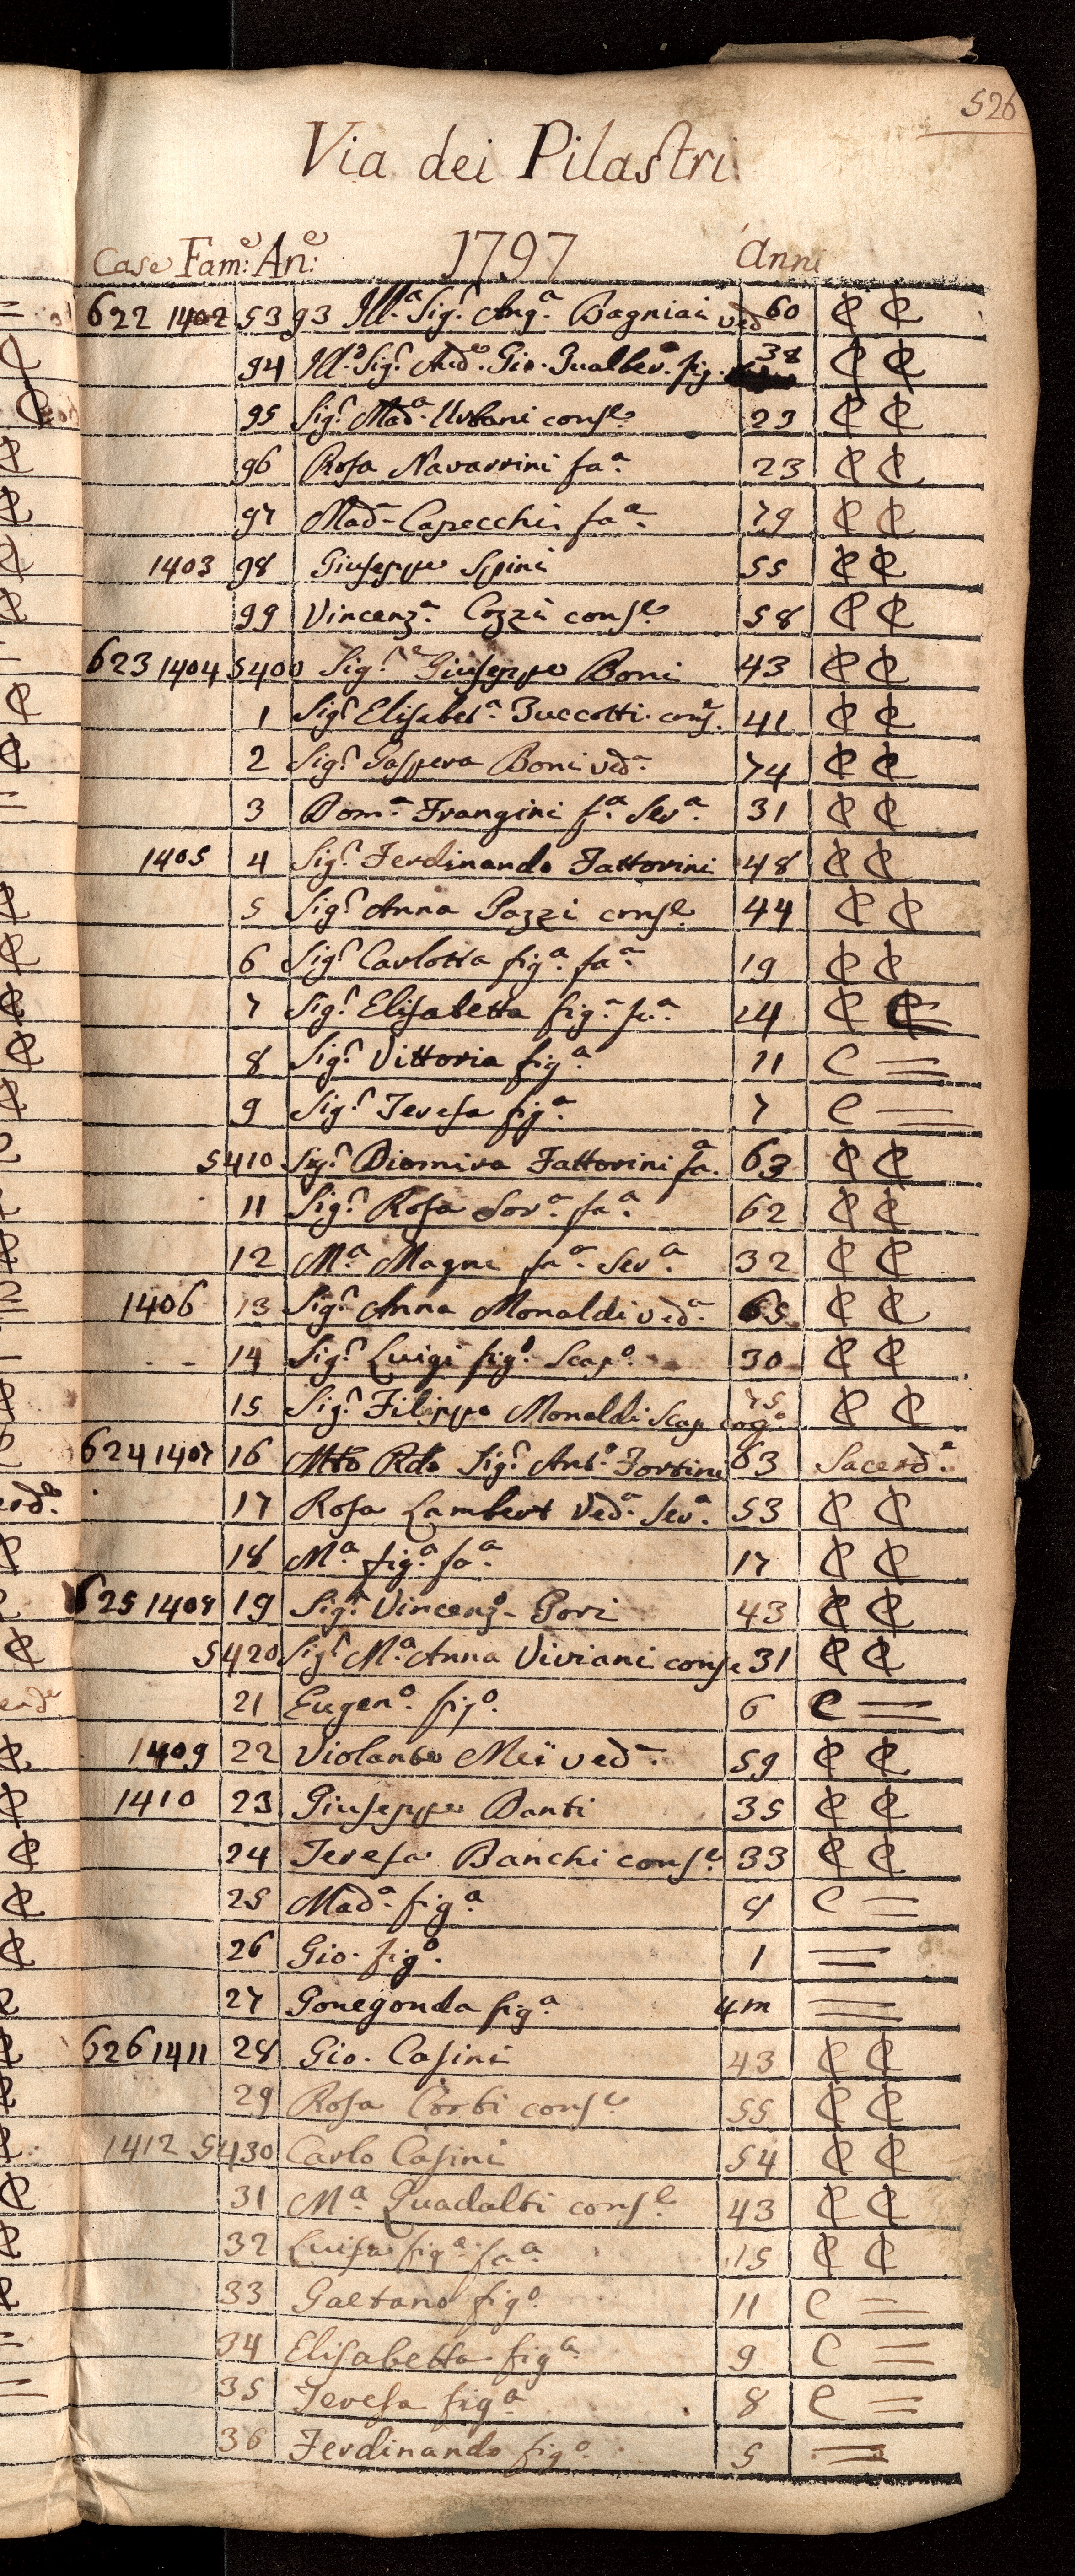 526
Via dei Pilastri
Case Fam:e An:e 1797 Anni
622 1402 5393 Ill.a Sig.r Ang.a Bagniai ved 60 C C
94 Ill.o Sig.r Aud.e Gio. Gualber. fig. 38 C C
95 Sig.r Mad.a Urbani cons.e 23 C C
96 Rosa Navarrini fa.a 23 C C
97 Mad.a Capecchi fa.a 79 C C
1403 98 Giuseppe Spini 55 C C
99 Vincenz.a Cozzi cons.e 58 C C
623 1404 5400 Sig.r Giuseppe Boni 43 C C
1 Sig.r Elisabet.a Buccotti cons. 41 C C
2 Sig.r Gaspera Boni ved.a 74 C C
3 Dom.a Frangini f.a Ser.a 31 C C
1405 4 Sig.r Ferdinando Fattorini 48 C C
5 Sig.r Anna Pazzi cons.e 44 C C
6 Sig.r Carlotta fig.a fa.a 19 C C
7 Sig.r Elisabetta fig.a fa.a 14 C C
8 Sig.r Vittoria fig.a 11 C =
9 Sig.r Teresa fig.a 7 C =
5410 Sig.r Diomira Fattorini fa. 63 C C
11 Sig.r Rosa Sor.a fa.a 62 C C
12 M.a Magni fa.a Ser.a 32 C C
1406 13 Sig.r Anna Monaldi ved.a 65 C C
14 Sig.r Luigi fig.o Scap.o 30 C C
15 Sig.r Filippo Monaldi Scap cog.o 75 C C
624 1407 16 Mto Rdo Sig.r Ant.o Fortini 63 Sacerd.e
17 Rosa Lambert Ved.a Ser.a 53 C C
18 M.a fig.a fa.a 17 C C
625 1408 19 Sig.r Vincenz.o Gori 43 C C
5420 Sig.r M.a Anna Viviani conse 31 C C
21 Eugen.o fig.o 6 C =
1409 22 Violante Mei ved.a 59 C C
1410 23 Giuseppe Banti 35 C C
24 Teresa Banchi cons.e 33 C C
25 Mad.a fig.a 4 C =
26 Gio. fig.o 1 =
27 Gonegonda fig.a 4m =
626 1411 28 Gio. Casini 43 C C
29 Rosa Corbi cons.e 55 C C
1412 5430 Carlo Casini 54 C C
31 M.a Guadalti cons.e 43 C C
32 Luisa fig.a fa.a 15 C C
33 Gaetano fig.o 11 C =
34 Elisabetta fig.a 9 C =
35 Teresa fig.a 8 C =
36 Ferdinando fig.o 5 =